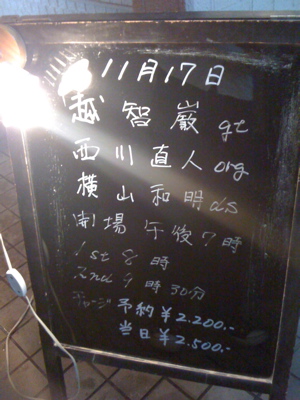 11月17日
越智巌 gt
西川直人 org
横山和明 ds
開場 午後7時
1st 8時
2nd 9時30分
チャージ 予約 ¥2.200.-
当日 ¥2.500.-